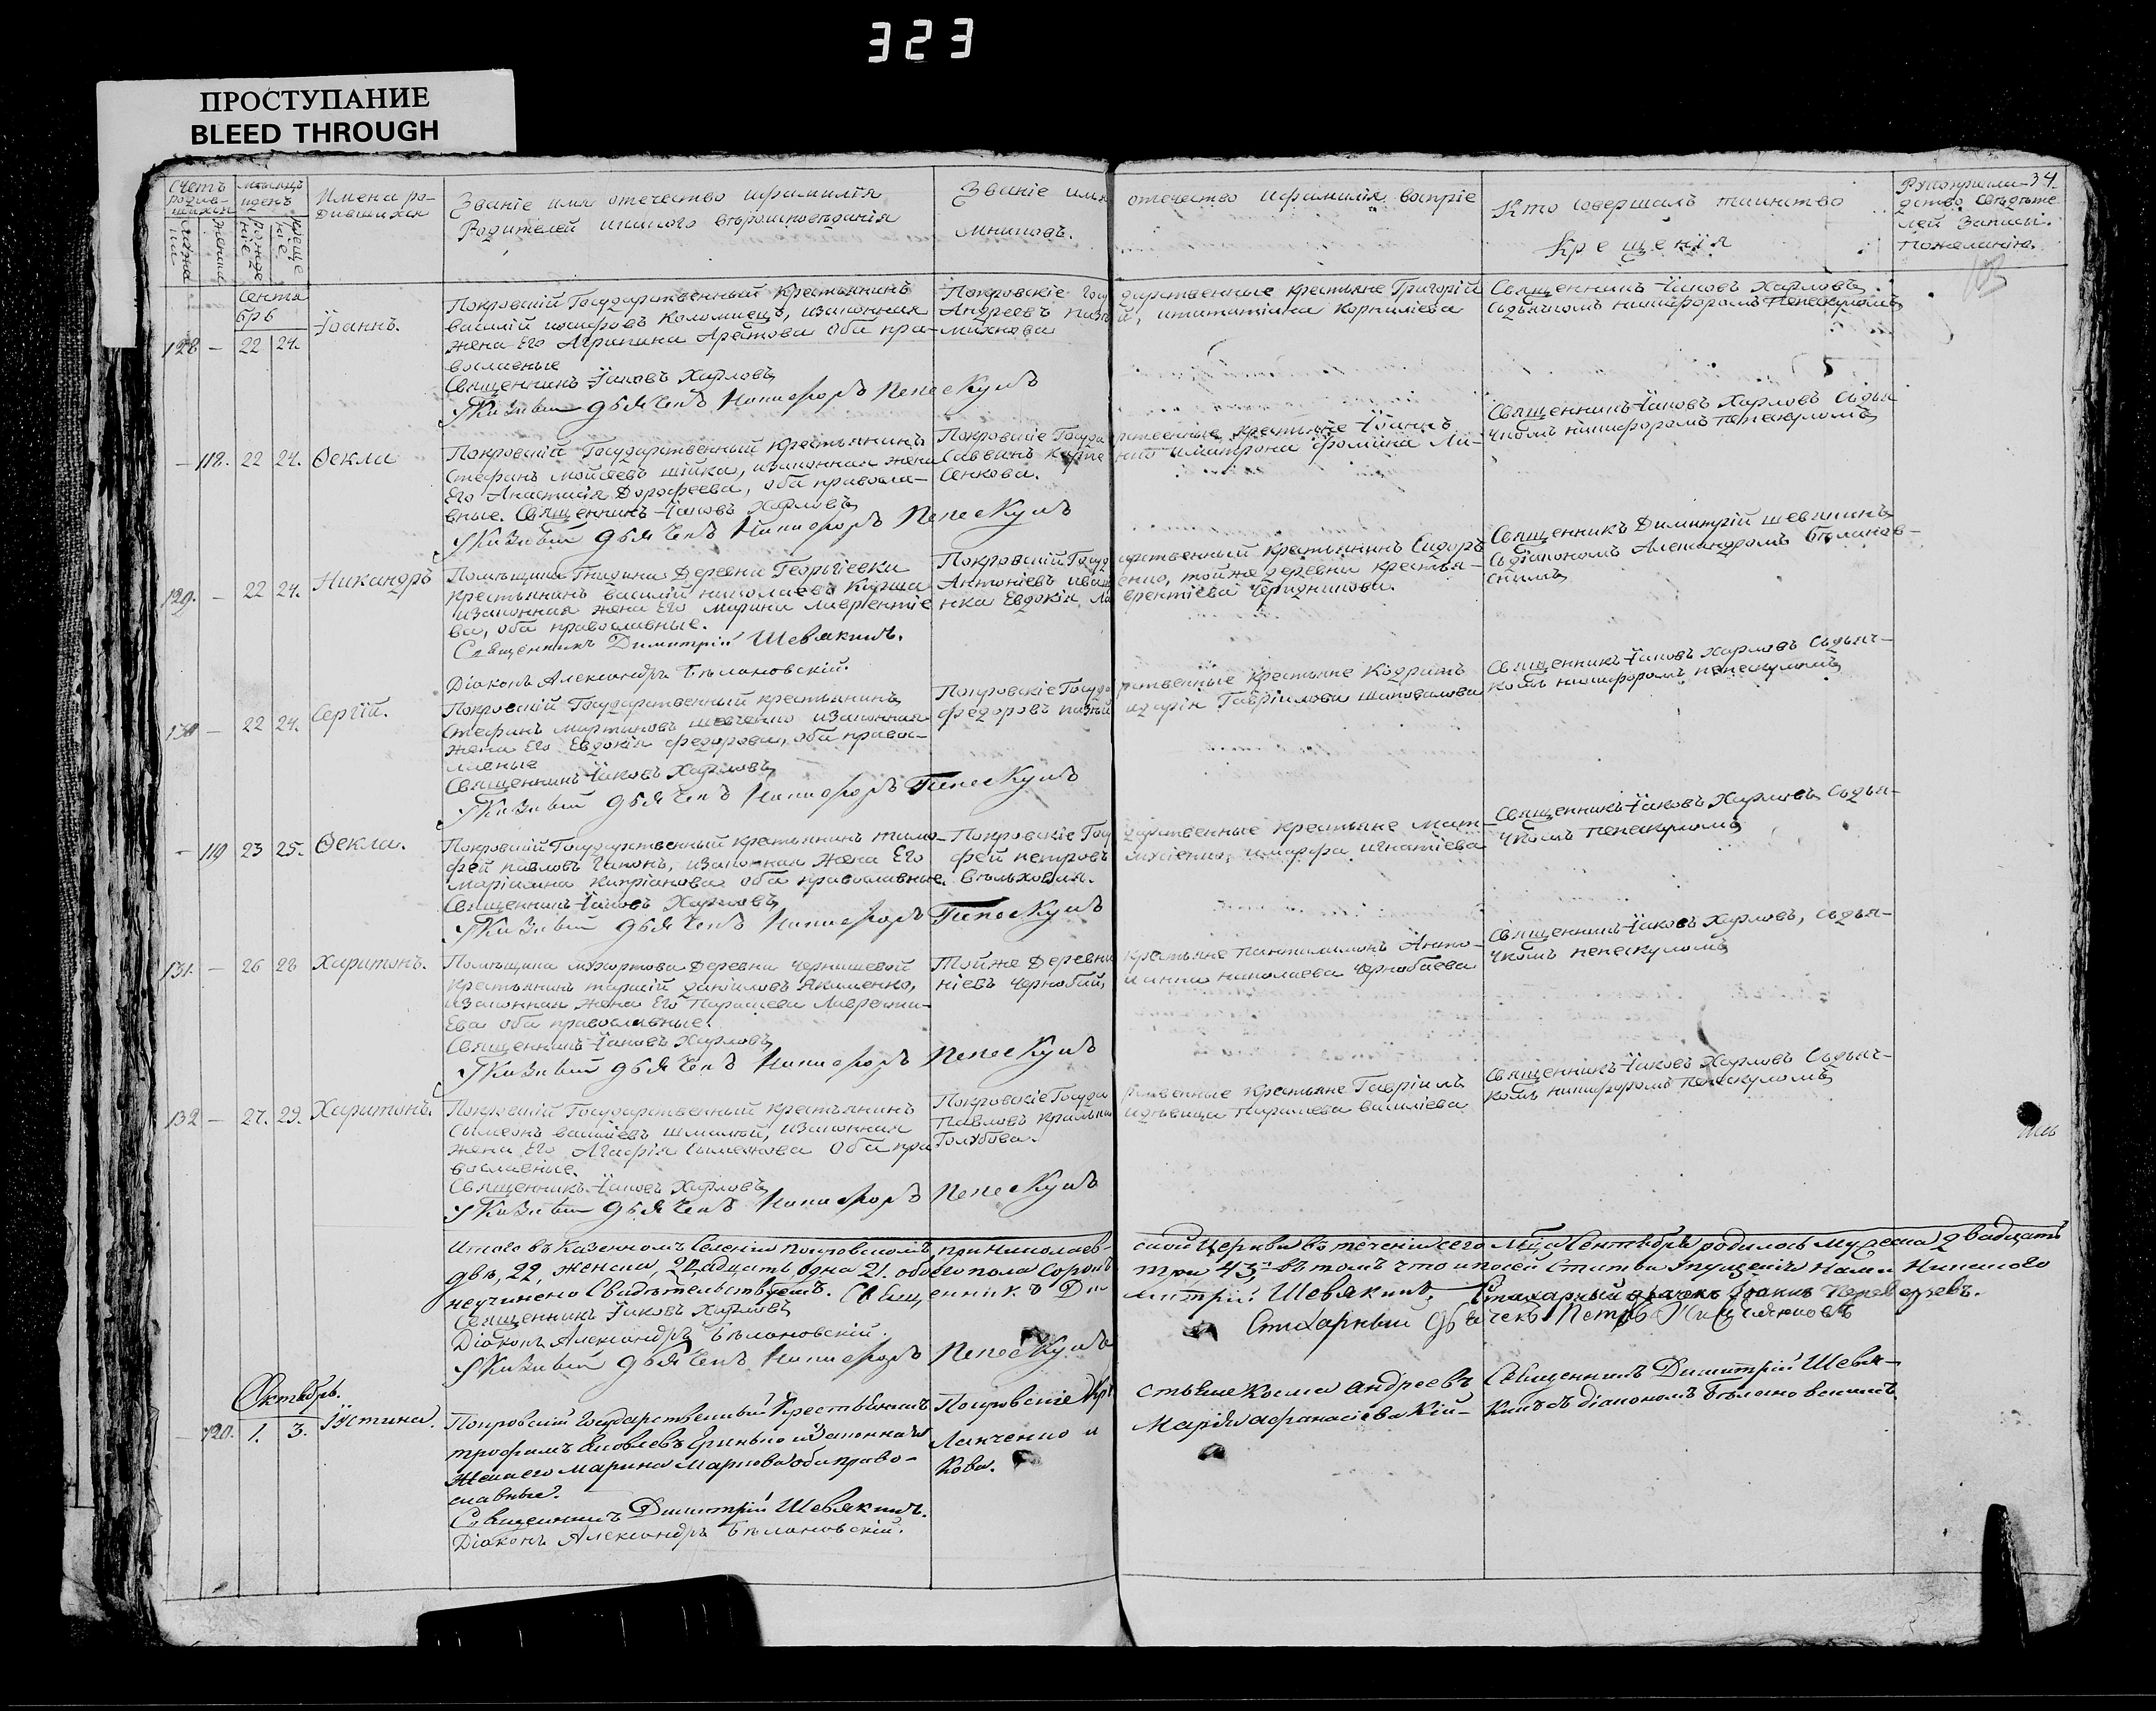 323
ПРОСТУПАНИЕ
BLEED THROUGH
Счетъ родив-шихся
Мѣсяцъ и день
Имена ро-
дившихся
Званіе имя отечество ифамилія
Родителей икакого вѣроисповѣданія
Званіе имя отечество ифамилія воспріе
мниковъ.
Кто совершалъ таинство
Крещенія
Рукоприкла-34.
дство свидѣте
лей записи.
Пожеланію.
103
Сентя
брь
128 – 22 24. Іоаннъ.
Покровскій Государственный крестьянинъ
василій
Коломиецъ, изаконная
жена Его Агрипина Арефова Оба пра-
вославные
Священникъ Іаковъ Харловъ
Указный дьячекъ Никифоръ Пепескулъ
Покровскіе государственные крестьяне Григорій
Андреевъ
итатіана Корнилієва
михнова
Священникъ Іаковъ Харловъ
Сдьячкомъ никифоромъ пепескуломъ
– 118. 22 24. Ѳекла
Покровскій Государственный крестьянинъ
Стефанъ мойсеевъ шійка, изаконная жена
Его Анастасія Дорофеева, оба правосла-
вные. Священникъ Іаковъ Харловъ
Указный дьячекъ Никифоръ Пепескулъ
Покровскіе Государственные крестьяне Іоаннъ
Саввинъ
иматрона фомина Ли-
сенкова.
Священникъ Іаковъ Харловъ Сдья
чкомъ никифоромъ пепескуломъ
129. – 22 24. Никандръ
Помѣщика Гнедина Деревни Георгіевки
крестьянинъ василій николаевъ Кирша
изаконная жена Его марина лаврентіе
ва, оба православные.
Священникъ Димитрій Шевякинъ.
Діаконъ Александръ Бѣлановскій.
Покровскій Государственный крестьянинъ Сидоръ
Антоніевъ иващенко, тойже деревни крестья-
нка Евдокія Лаврентіева Чередникова.
Священникъ Димитрій шевякинъ
Сдіакономъ Александромъ Бѣланов-
скимъ
130 – 22 24. Сергій.
Покровскій Государственный крестьянинъ
Стефанъ мартиновъ шевченко изаконная
жена Его Евдокія федорова, оба право-
славные
Священникъ Іаковъ Харловъ
Указный дьячекъ Никифоръ Пепескулъ
Покровскіе Государственные крестьяне Кодратъ
федоровъ
идарія Гавріилова шаповалова
Священникъ Іаковъ Харловъ Сдьяч-
комъ никифоромъ пепескуломъ
– 119 23 25. Ѳекла.
Покровскій Государственный крестьянинъ тимо-
фей павловъ Гапонъ, изаконная жена Его
Маріамна Кипріанова оба православные.
Священникъ Іаковъ Харловъ
Указный дьячекъ Никифоръ Пепескулъ
Покровскіе Государственные крестьяне Мат-
фей петровъ мусіенко, имарфа игнатіева
Вѣльховая.
Священникъ Іаковъ Харловъ Сдья-
чкомъ пепескуломъ
131. – 26 28 Харитонъ.
Помѣщика
Деревни Чернишевой
крестьянинъ тарасій даніиловъ Якименко,
изаконная жена Его Параскева Лаврентi-
Ева оба православные.
Священникъ Іаковъ Харловъ
Указный дьячекъ Никифоръ Пепескулъ
Тойже Деревни крестьяне пантилимонъ Анто-
ніевъ чернобай, ианна николаева чернобаева
Священникъ Іаковъ Харловъ, Сдья-
чкомъ пепескуломъ
132 – 27. 29. Харитонъ.
Покровскій Государственный крестьянинъ
Симеонъ василіевъ
изаконная
жена Его Агафія Симеонова Оба пра
вославные.
Священникъ Іаковъ Харловъ
Указный дьячекъ Никифоръ Пепескулъ
Покровскіе Государственные крестьяне Гавріилъ
Павловъ
идѣвица Параскева василіева
Голубова.
Священникъ Іаковъ Харловъ Сдьяч-
комъ никифоромъ пепескуломъ
Итого въ Казенномъ Селеніи покровскомъ при николаев-
ской Церкви въ теченіи сего мца Сентябрь родилось мужеска двадцать
двѣ, 22, женска, двадцать одна 21. обоего пола сорокъ
три 43; Въ томъ что
Статьи
нами никакого
неучинено Свидѣтельствуемъ. Священникъ Димитрій Шевякинъ, Стихарный дьячекъ Іоаннъ Переверзевъ.
Священникъ Іаковъ Харловъ
Стихарный дьячекъ Петръ
Діаконъ Александръ Бѣлановскій.
Указный дьячекъ Никифоръ Пепескулъ
Октябрь.
– 120. 1. 3. Іустина.
Покровскій Государственный Крестьянинъ
трофимъ Яковлевъ
изаконная
жена его Марина Маркова оба право-
славные.
Священникъ Димитрій Шевякинъ.
Діаконъ Александръ Бѣлановскій.
Покровскіе Крестьяне Косма Андреевъ
Ланченко и Марія афанасіева Кій-
кова.
Священникъ Димитрій Шевя-
кинъ съ діакономъ Бѣлановскимъ